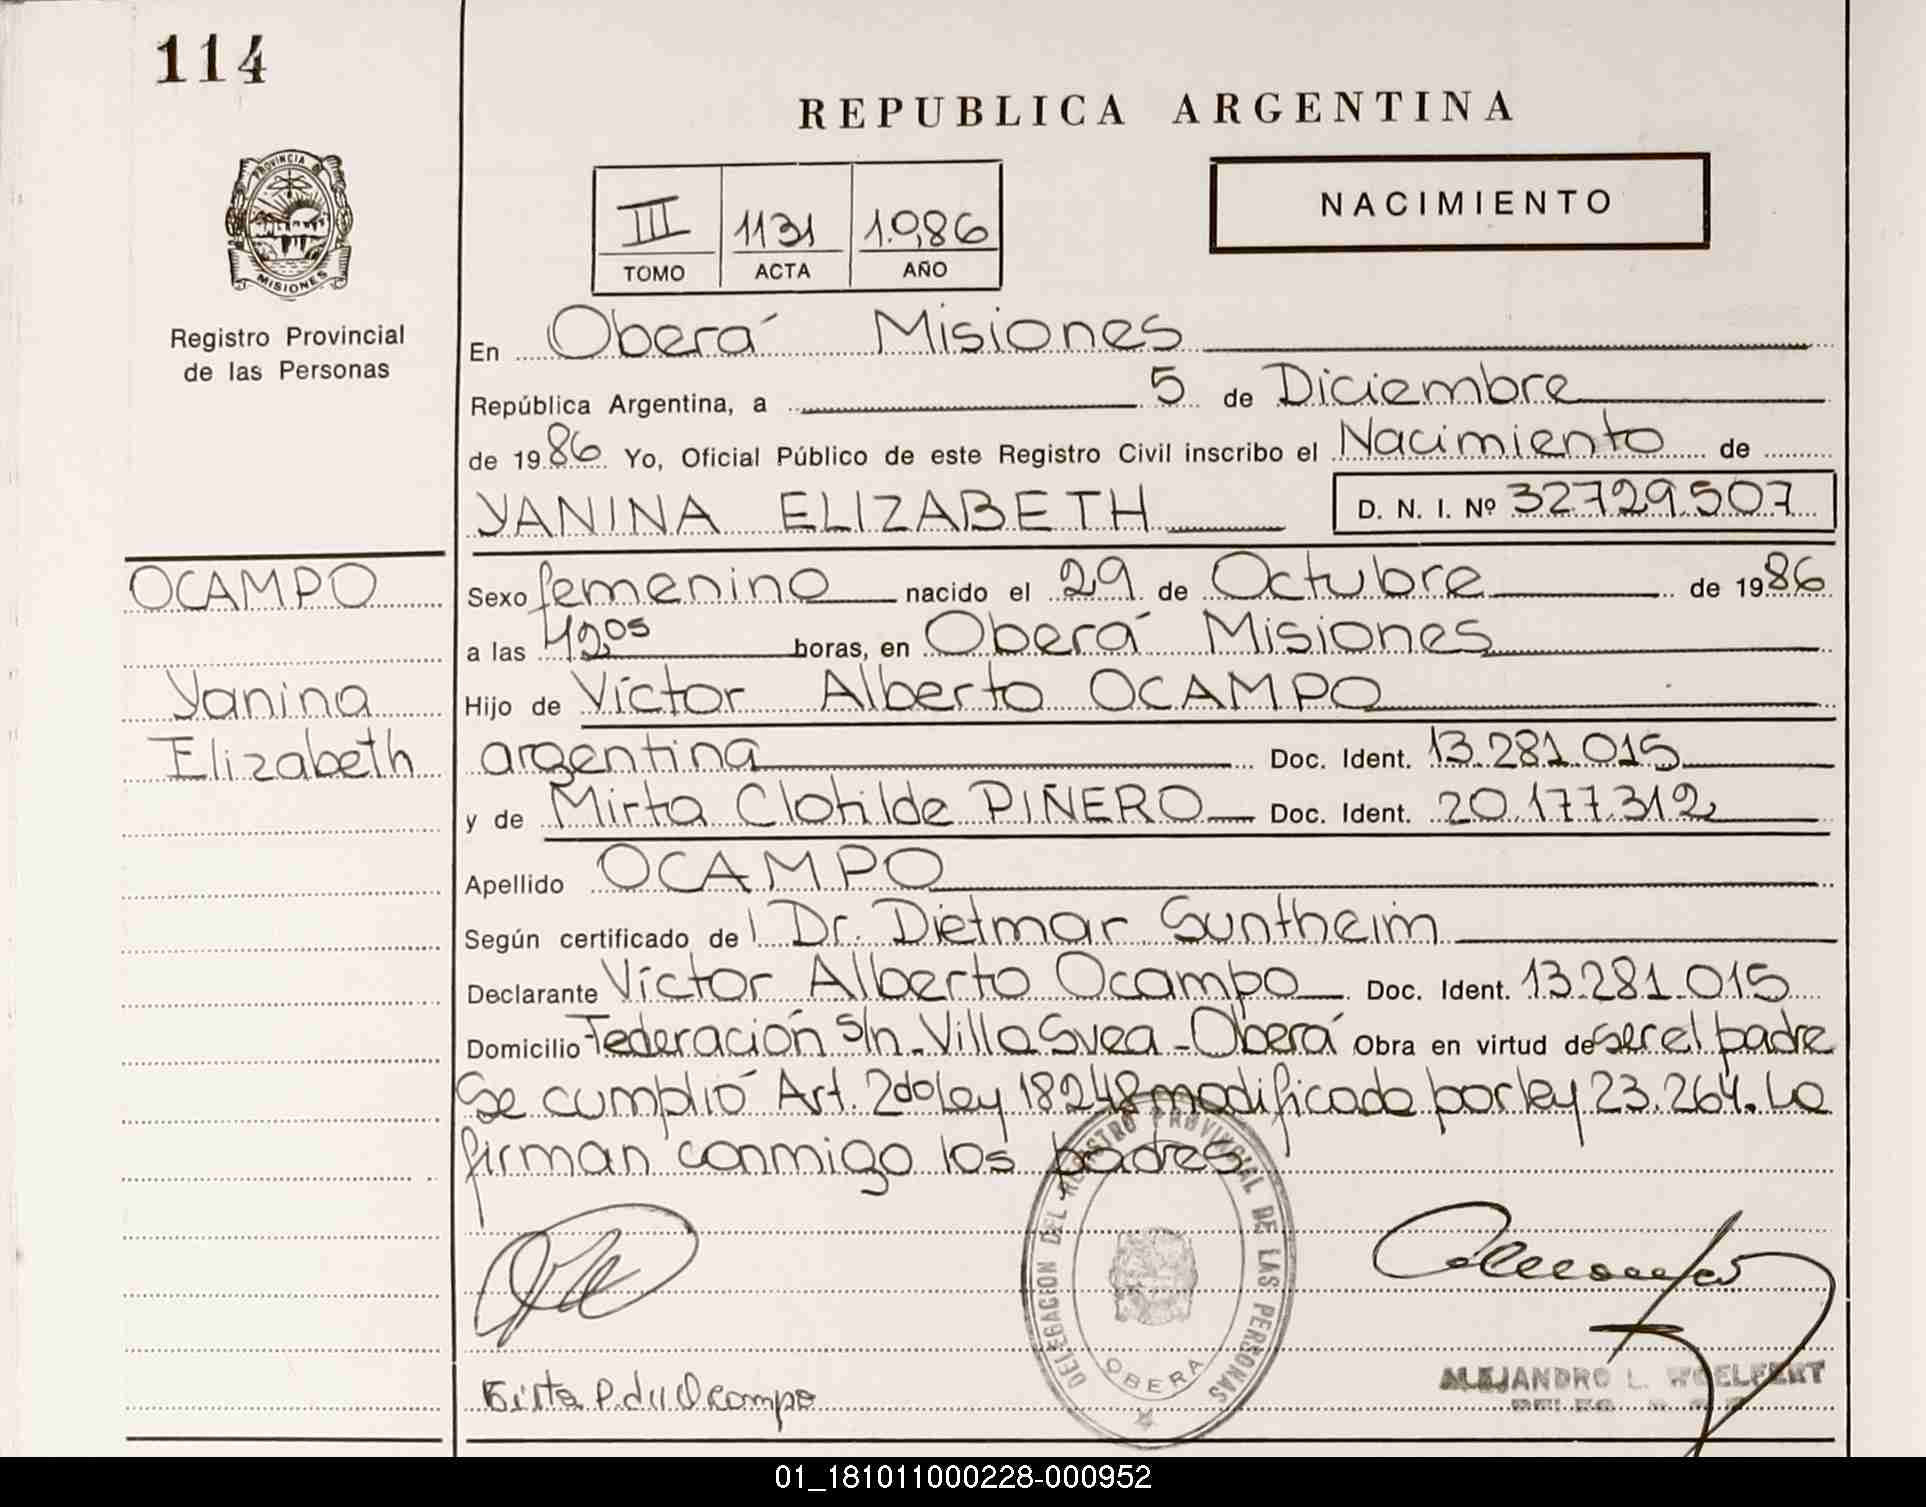 114
REPUBLICA ARGENTINA
PROVINCIA DE
MISIONES
Registro Provincial
de las Personas
III 1131 1.986
TOMO ACTA AÑO
NACIMIENTO
En Oberá Misiones
República Argentina, a 5 de Diciembre
de 1986 Yo, Oficial Público de este Registro Civil inscribo el Nacimiento de
YANINA ELIZABETH D. N. I. Nº 32729.507
OCAMPO
Yanina
Elizabeth
Sexo femenino nacido el 29 de Octubre de 1986
a las 12,05 horas, en Oberá Misiones
Hijo de Víctor Alberto OCAMPO
argentina Doc. Ident. 13.281.015
y de Mirta Clotilde PIÑERO Doc. Ident. 20.177.312
Apellido OCAMPO
Según certificado de l Dr. Dietmar Suntheim
Declarante Víctor Alberto Ocampo Doc. Ident. 13.281.015
Domicilio Federación s/n-Villa Svea-Oberá Obra en virtud de ser el padre
Se cumplió Art. 2do Ley 18248 modificada por ley 23.264. La
firman conmigo los padres
DELEGACION DEL REGISTRO PROVINCIAL DE LAS PERSONAS
OBERA
Ocampo
ALEJANDRO L. WOELFERT
01_181011000228-000952